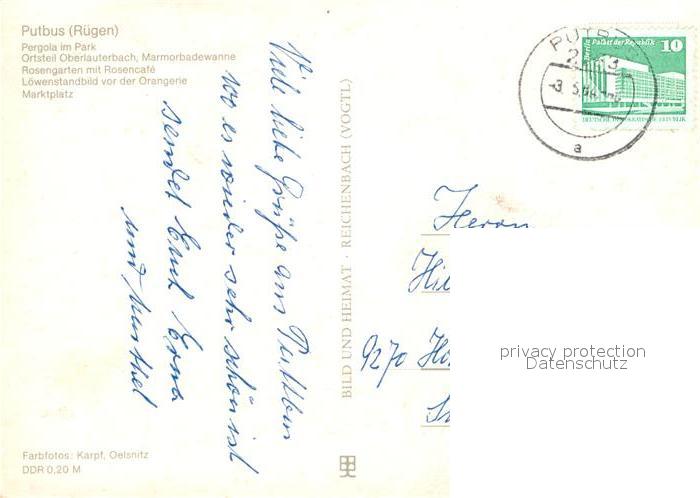 Putbus (Rügen)
Pergola im Park
Ortsteil Oberlauterbach, Marmorbadewanne
Rosengarten mit Rosencafé
Löwenstandbild vor der Orangerie
Marktplatz
Viele liebe Grüße aus Puttbus
wo es wieder sehr schön ist
sendet Euch Erna
und
BILD UND HEIMAT · REICHENBACH (VOGTL)
PUTBUS
a
Berlin Palast der Republik 10
DEUTSCHE DEMOKRATISCHE REPUBLIK
Herrn
9270
privacy protection
Datenschutz
Farbfotos: Karpf, Oelsnitz
DDR 0,20 M